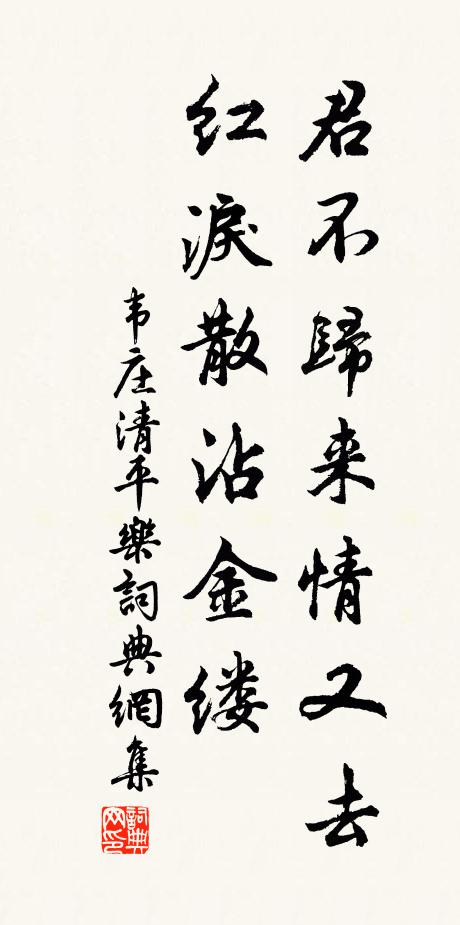 君不歸来情又去
红淚散沾金缕
韦庄清平樂詞典網集
詞典网印